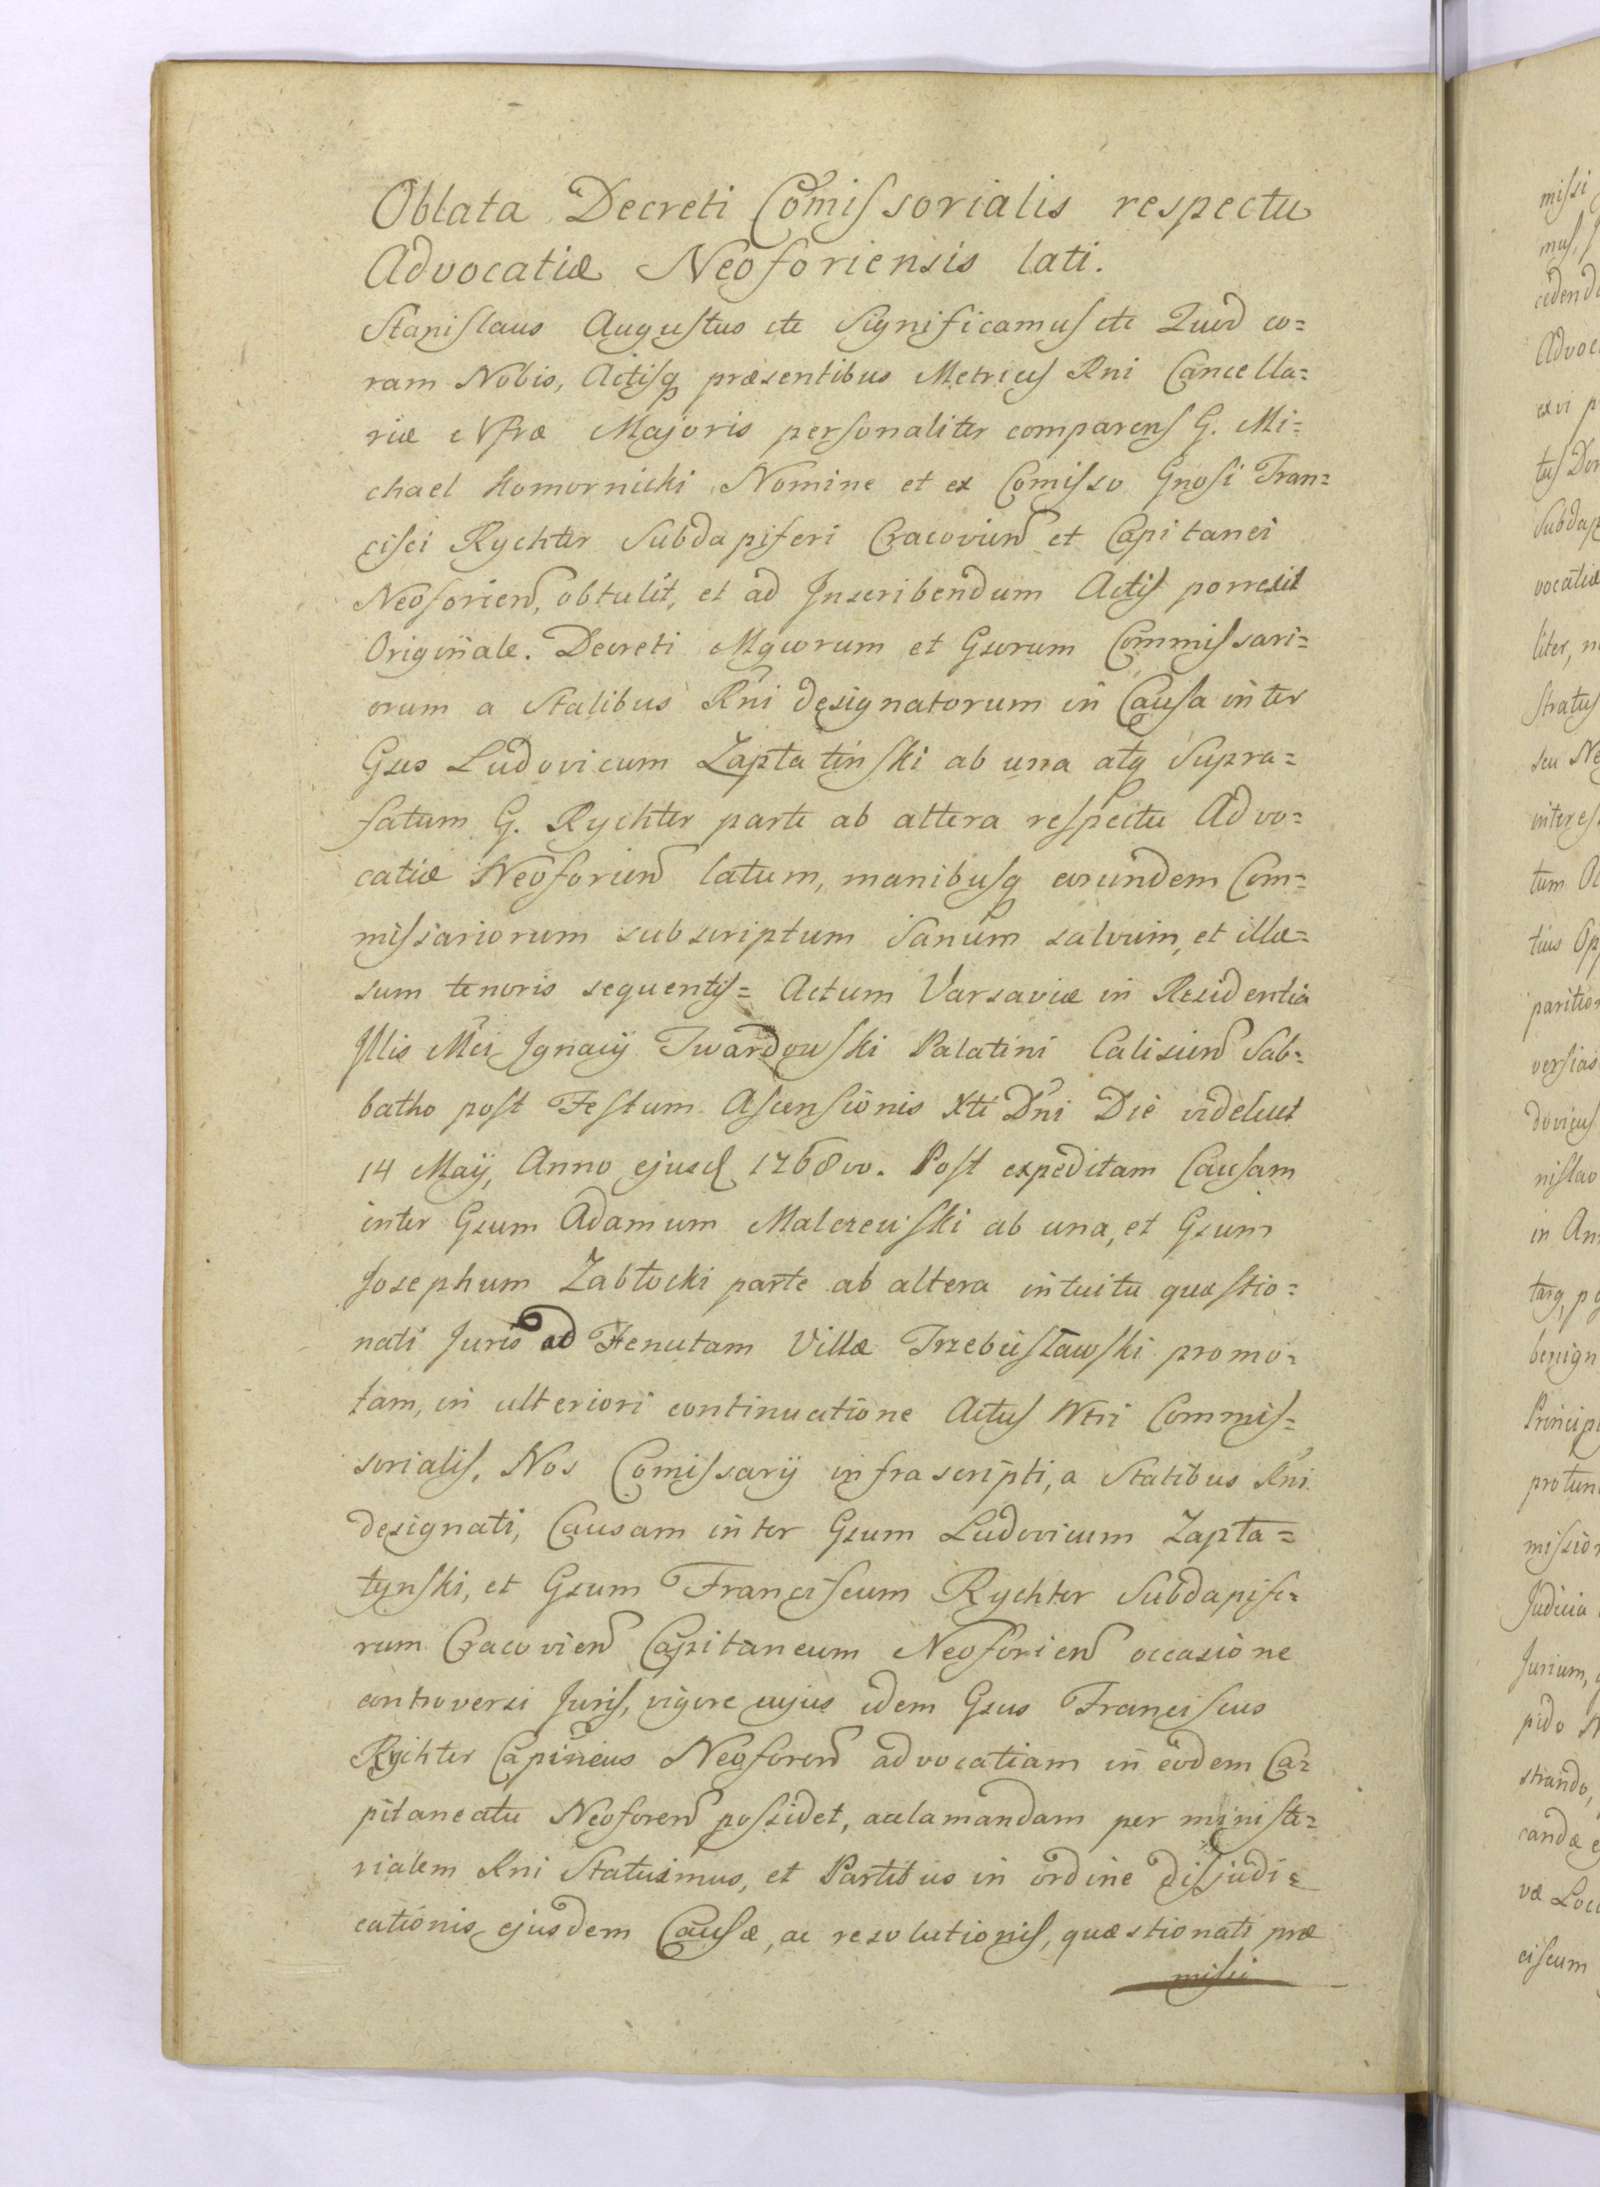 Oblata Decreti Comissorialis respectu
Advocatiæ Neoforiensis lati.
Stanislaus Augustus etc Significamus etc Quod co=
ram Nobis, Actisq præsentibus Metrices Rni Cancella=
riæ Nfræ Majoris personaliter comparens G. Mi=
chael Komornicki Nomine et ex Comisso Gnosi Fran=
cisci Rychter Subdapiferi Cracovien et Capitanei
Neoforien, obtulit, et ad Inscribendum Actis porrexit
Originale. Decreti Mgcorum et Gsorum Commissari=
orum a Statibus Rni designatorum in Causa inter
Gsos Ludovicum Zapłatinski ab una atq Supra=
fatum G. Rychter parte ab altera respectu Advo=
catiæ Neoforien latum, manibusq eorundem Com=
missariorum subscriptum Sanum salvum, et illæ=
sum tenoris sequentis= Actum Varsaviæ in Residentia
Illis Mci Ignacij Twardowski Palatini Calisien Sab=
batho post Festum Ascensionis Xti Dni Die videlicet
14 Maij, Anno ejusd 1768vo. Post expeditam Causam
inter Gsum Adamum Malczewski ab una, et Gsum
Josephum Zabłocki parte ab altera intuitu quæstio=
nati Juris ad Tenutam Villæ Trzebisławski promo=
tam, in ulteriori continuatione Actus Ntri Commis=
sorialis, Nos Comissarij infrascripti, a Statibus Rni
designati, Causam inter Gsum Ludovicum Zapła=
tynski, et Gsum Franciscum Rychter Subdapife=
rum Cracovien Capitaneum Neoforien occasione
controversi Juris, vigore cujus idem Gsus Franciscus
Rychter Capineus Neoforen advocatiam in eodem Ca=
pitaneatu Neoforen possidet, acclamandam per ministe=
rialem Rni Statuimus, et Partibus in ordine disjudi=
cationis ejusdem Causæ, ac resolutionis, quæstionati præ
missi